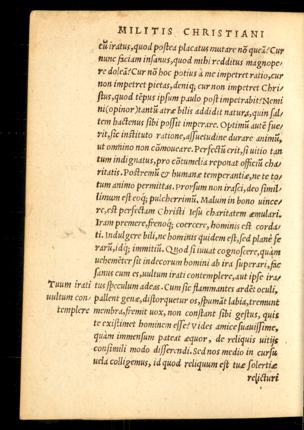 MILITIS CHRISTIANI
tū iratus, quod postea placatus mutare nō queā? Cur
nunc faciam insanus, quod mihi redditus magnope/
re doleā? Cur nō hoc potius à me impetret ratio, cur
non impetret pietas, deniq; cur non impetret Chri/
stus, quod tēpus ipsum paulo post impetrabit? Nemi
ni (opinor) tantū atræ bilis addidit natura, quin sal/
tem hactenus sibi possit imperare. Optimū aūt fue/
rit, sic instituto ratione, assuetudine durare animū,
ut omnino non cōmoueare. Perfectū erit, si uitio tan
tum indignatus, pro cōtumelia reponat officiū cha/
ritatis. Postremū & humanæ temperantiæ, ne te to/
tum animo permittas. Prorsum non irasci, deo simil/
limum est eoq; pulcherrimū. Malum in bono uince/
re, est perfectam Christi Iesu charitatem æmulari.
Iram premere, frenoq; coercere, hominis est corda/
ti. Indulgere bili, ne hominis quidem est, sed planè fe
rarū, idq; immitiū. Quod si iuuat cognoscere, quàm
uehemēter sit indecorum homini ab ira superari, fac
sanus cum es, uultum irati contemplere, aut ipse ira/
Tuum irati
uultum con/
templere
tus speculum adeas. Cum sic flammantes ardēt oculi,
pallent genæ, distorquetur os, spumāt labia, tremunt
membra, fremit uox, non constant sibi gestus, quis
te existimet hominem esse? Vides amice suauissime,
quàm immensum pateat æquor, de reliquis uitijs
consimili modo disserendi. Sed nos medio in cursu
uela colligemus, id quod reliquum est tuæ solertiæ
relicturi